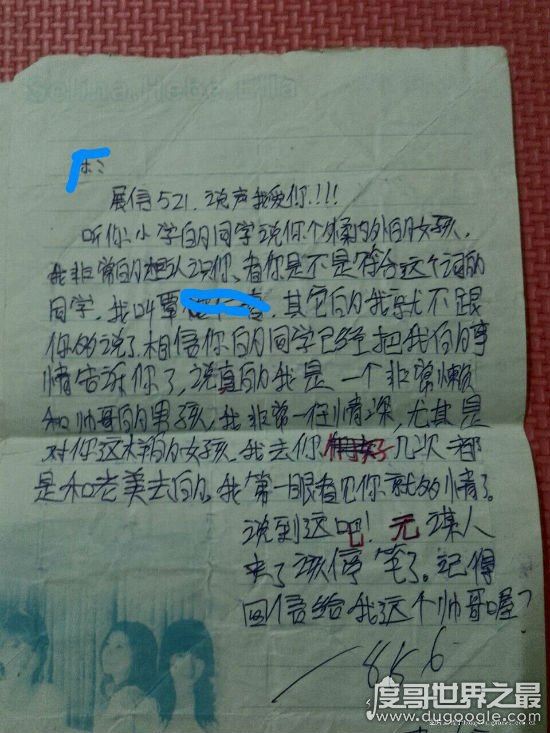 Selina.Hebe.Ella
展信521.说声我爱你!!!
听你小学的同学说你个外柔内外的女孩,
我非常的想认识你、看你是不是符合这个词的
同学.我叫覃 其它的我就不跟
你的说了.相信你的同学已经把我们的事
情告诉你了,说真的我是一个非常懒
和帅哥的男孩,我非常一任情深,尤其是
对你这样的女孩.我去你 好几次都
是和老美去的.我第一眼看见你就的情了.
说到这吧!无谋人
来了该停笔了。记得
回信给我这个帅哥喔?
886
度哥世界之最
www.dugoogle.com